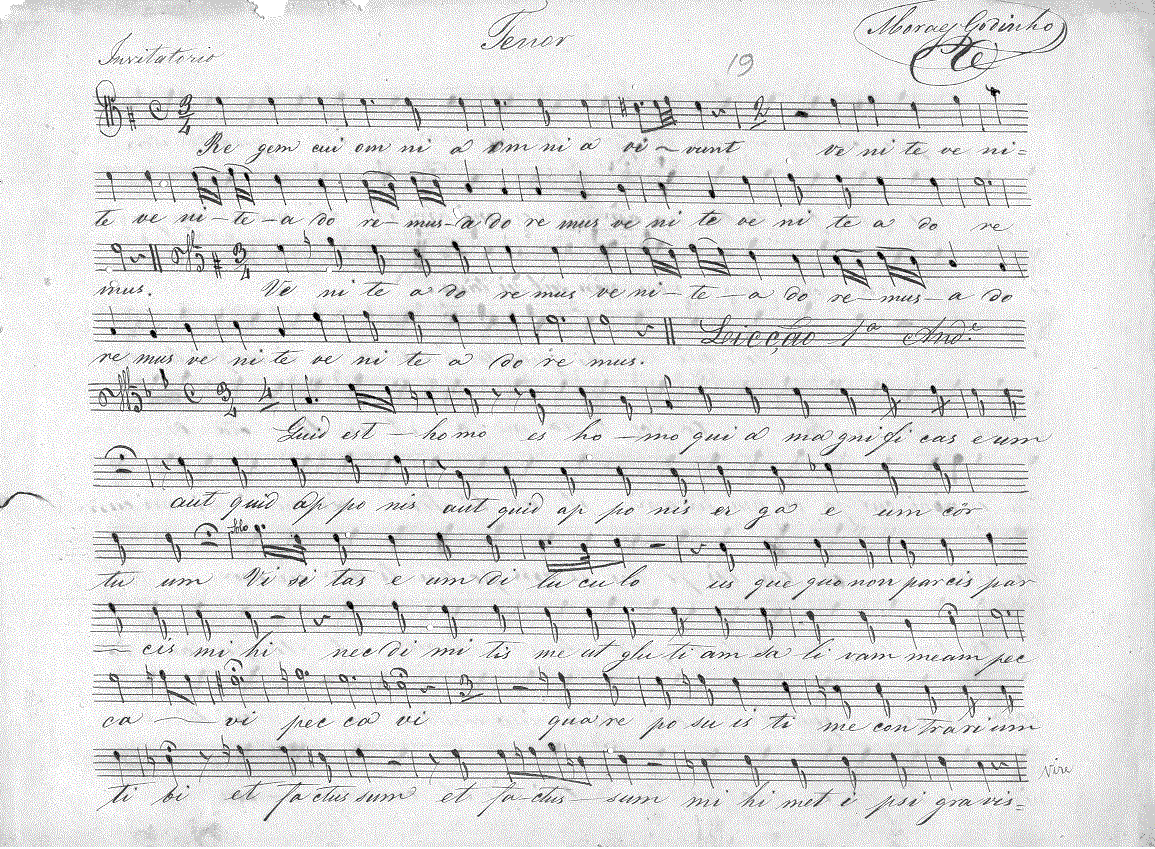 Tenor
Moraes Godinho
Invitatorio
19
Re gem cui om ni a om ni a vi - vunt ve ni te ve ni=
te ve ni - te - a do re - mus - a do re mus ve ni te ve ni te a do re
mus. Ve ni te a do re mus ve ni - te - a do re - mus - a do
re mus ve ni te ve ni te a do re mus. Licção 1ª And.e
Quid est - homo es ho - mo qui a ma gni fi cas e um
aut quid ap po nis aut quid ap po nis er ga e um cor
tu um Vi si tas e um di lu cu lo us que quo non par cis par
= cis mi hi nec di mi tis me ut glu ti am sa li vam meam pec
ca - vi pec ca vi qua re po su is ti me con tra ri um
ti bi et factus sum et fa - ctus - sum mi hi met i psi gra vis=
vire